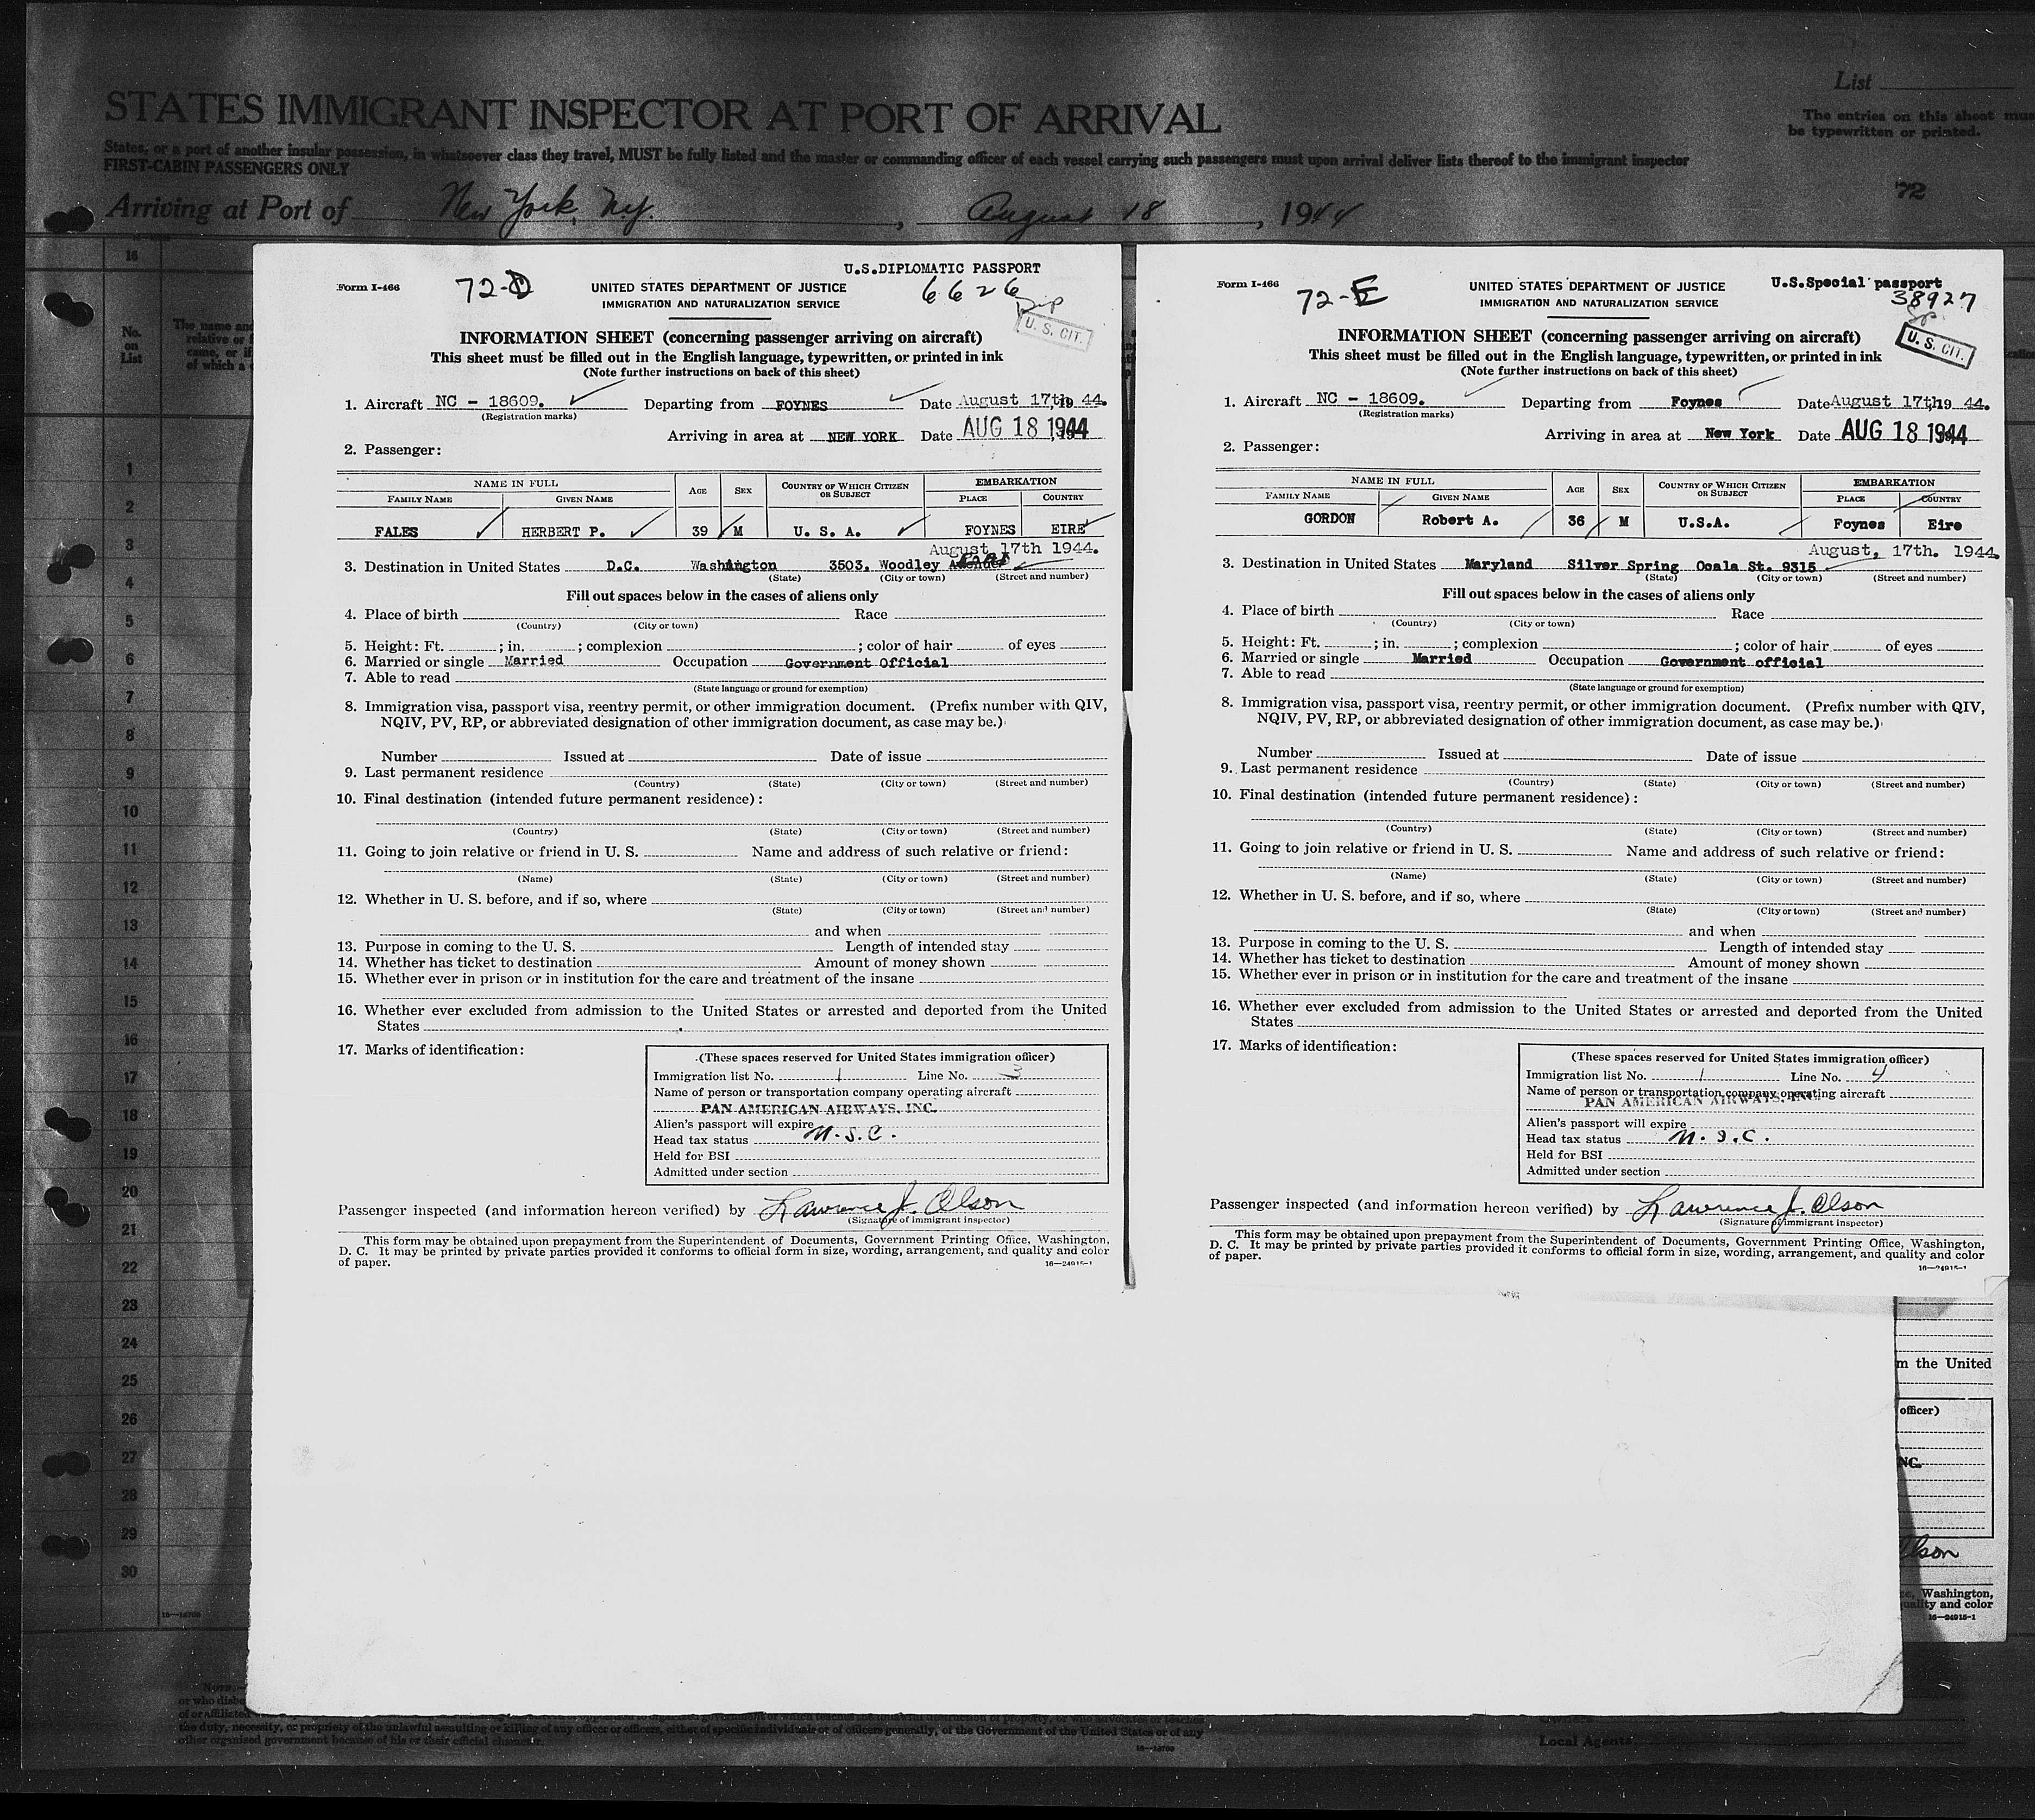 List
STATES IMMIGRANT INSPECTOR AT PORT OF ARRIVAL
The entries on this sheet mus
be typewritten or printed.
States, or a port of another insular possession, in whatsoever class they travel, MUST be fully listed and the master or commanding officer of each vessel carrying such passengers must upon arrival deliver lists thereof to the immigrant inspector
FIRST-CABIN PASSENGERS ONLY
72
Arriving at Port of New York, N.Y., August 18, 1944
16
No.
on
List
The name and
relative or
came, or if
of which a
1
2
3
4
5
6
7
8
9
10
11
12
13
14
15
16
17
18
19
20
21
22
23
24
25
26
27
28
29
30
16—18700
U.S.DIPLOMATIC PASSPORT
Form I-466
72-D
UNITED STATES DEPARTMENT OF JUSTICE
6626
IMMIGRATION AND NATURALIZATION SERVICE
Dip
U. S. CIT.
INFORMATION SHEET (concerning passenger arriving on aircraft)
This sheet must be filled out in the English language, typewritten, or printed in ink
(Note further instructions on back of this sheet)
1. Aircraft NC - 18609. Departing from FOYNES Date August 17th, 19 44.
(Registration marks)
Arriving in area at NEW YORK Date AUG 18 1944
2. Passenger:
NAME IN FULL AGE SEX COUNTRY OF WHICH CITIZEN OR SUBJECT EMBARKATION
FAMILY NAME GIVEN NAME PLACE COUNTRY
FALES HERBERT P. 39 M U. S. A. FOYNES EIRE
August 17th 1944.
3. Destination in United States D.C. Washington 3503. Woodley
(State) (City or town) (Street and number)
Fill out spaces below in the cases of aliens only
4. Place of birth Race
(Country) (City or town)
5. Height: Ft. ; in. ; complexion ; color of hair of eyes
6. Married or single Married Occupation Government Official
7. Able to read
(State language or ground for exemption)
8. Immigration visa, passport visa, reentry permit, or other immigration document. (Prefix number with QIV,
NQIV, PV, RP, or abbreviated designation of other immigration document, as case may be.)
Number Issued at Date of issue
9. Last permanent residence
(Country) (State) (City or town) (Street and number)
10. Final destination (intended future permanent residence):
(Country) (State) (City or town) (Street and number)
11. Going to join relative or friend in U. S. Name and address of such relative or friend:
(Name) (State) (City or town) (Street and number)
12. Whether in U. S. before, and if so, where
(State) (City or town) (Street and number)
and when
13. Purpose in coming to the U. S. Length of intended stay
14. Whether has ticket to destination Amount of money shown
15. Whether ever in prison or in institution for the care and treatment of the insane
16. Whether ever excluded from admission to the United States or arrested and deported from the United
States
17. Marks of identification:
(These spaces reserved for United States immigration officer)
Immigration list No. 1 Line No. 3
Name of person or transportation company operating aircraft
PAN AMERICAN AIRWAYS, INC.
Alien's passport will expire
Head tax status N.S.C.
Held for BSI
Admitted under section
Passenger inspected (and information hereon verified) by Lawrence J. Olson
(Signature of immigrant inspector)
This form may be obtained upon prepayment from the Superintendent of Documents, Government Printing Office, Washington,
D. C. It may be printed by private parties provided it conforms to official form in size, wording, arrangement, and quality and color
of paper.
16—24915-1
Form I-466
72-E
UNITED STATES DEPARTMENT OF JUSTICE
U.S.Special passport
38927
IMMIGRATION AND NATURALIZATION SERVICE
Sp.
U. S. CIT.
INFORMATION SHEET (concerning passenger arriving on aircraft)
This sheet must be filled out in the English language, typewritten, or printed in ink
(Note further instructions on back of this sheet)
1. Aircraft NC - 18609. Departing from Foynes Date August 17th, 19 44.
(Registration marks)
Arriving in area at New York Date AUG 18 1944
2. Passenger:
NAME IN FULL AGE SEX COUNTRY OF WHICH CITIZEN OR SUBJECT EMBARKATION
FAMILY NAME GIVEN NAME PLACE COUNTRY
GORDON Robert A. 36 M U.S.A. Foynes Eire
August, 17th. 1944.
3. Destination in United States Maryland Silver Spring Ocala St. 9315
(State) (City or town) (Street and number)
Fill out spaces below in the cases of aliens only
4. Place of birth Race
(Country) (City or town)
5. Height: Ft. ; in. ; complexion ; color of hair of eyes
6. Married or single Married Occupation Government official
7. Able to read
(State language or ground for exemption)
8. Immigration visa, passport visa, reentry permit, or other immigration document. (Prefix number with QIV,
NQIV, PV, RP, or abbreviated designation of other immigration document, as case may be.)
Number Issued at Date of issue
9. Last permanent residence
(Country) (State) (City or town) (Street and number)
10. Final destination (intended future permanent residence):
(Country) (State) (City or town) (Street and number)
11. Going to join relative or friend in U. S. Name and address of such relative or friend:
(Name) (State) (City or town) (Street and number)
12. Whether in U. S. before, and if so, where
(State) (City or town) (Street and number)
and when
13. Purpose in coming to the U. S. Length of intended stay
14. Whether has ticket to destination Amount of money shown
15. Whether ever in prison or in institution for the care and treatment of the insane
16. Whether ever excluded from admission to the United States or arrested and deported from the United
States
17. Marks of identification:
(These spaces reserved for United States immigration officer)
Immigration list No. 1 Line No. 4
Name of person or transportation company operating aircraft
PAN AMERICAN AIRWAYS, INC.
Alien's passport will expire
Head tax status N.S.C.
Held for BSI
Admitted under section
Passenger inspected (and information hereon verified) by Lawrence J. Olson
(Signature of immigrant inspector)
This form may be obtained upon prepayment from the Superintendent of Documents, Government Printing Office, Washington,
D. C. It may be printed by private parties provided it conforms to official form in size, wording, arrangement, and quality and color
of paper.
16—24915-1
m the United
officer)
NC.
Olson
Washington,
uality and color
16—24915-1
NOTE.—
or who disbe
of or affiliated
the duty, necessity, or propriety of the unlawful assaulting or killing of any officer or officers, either of specific individuals or of officers generally, of the Government of the United States or of any
other organized government because of his or their official character.
16—18700
Local Agents